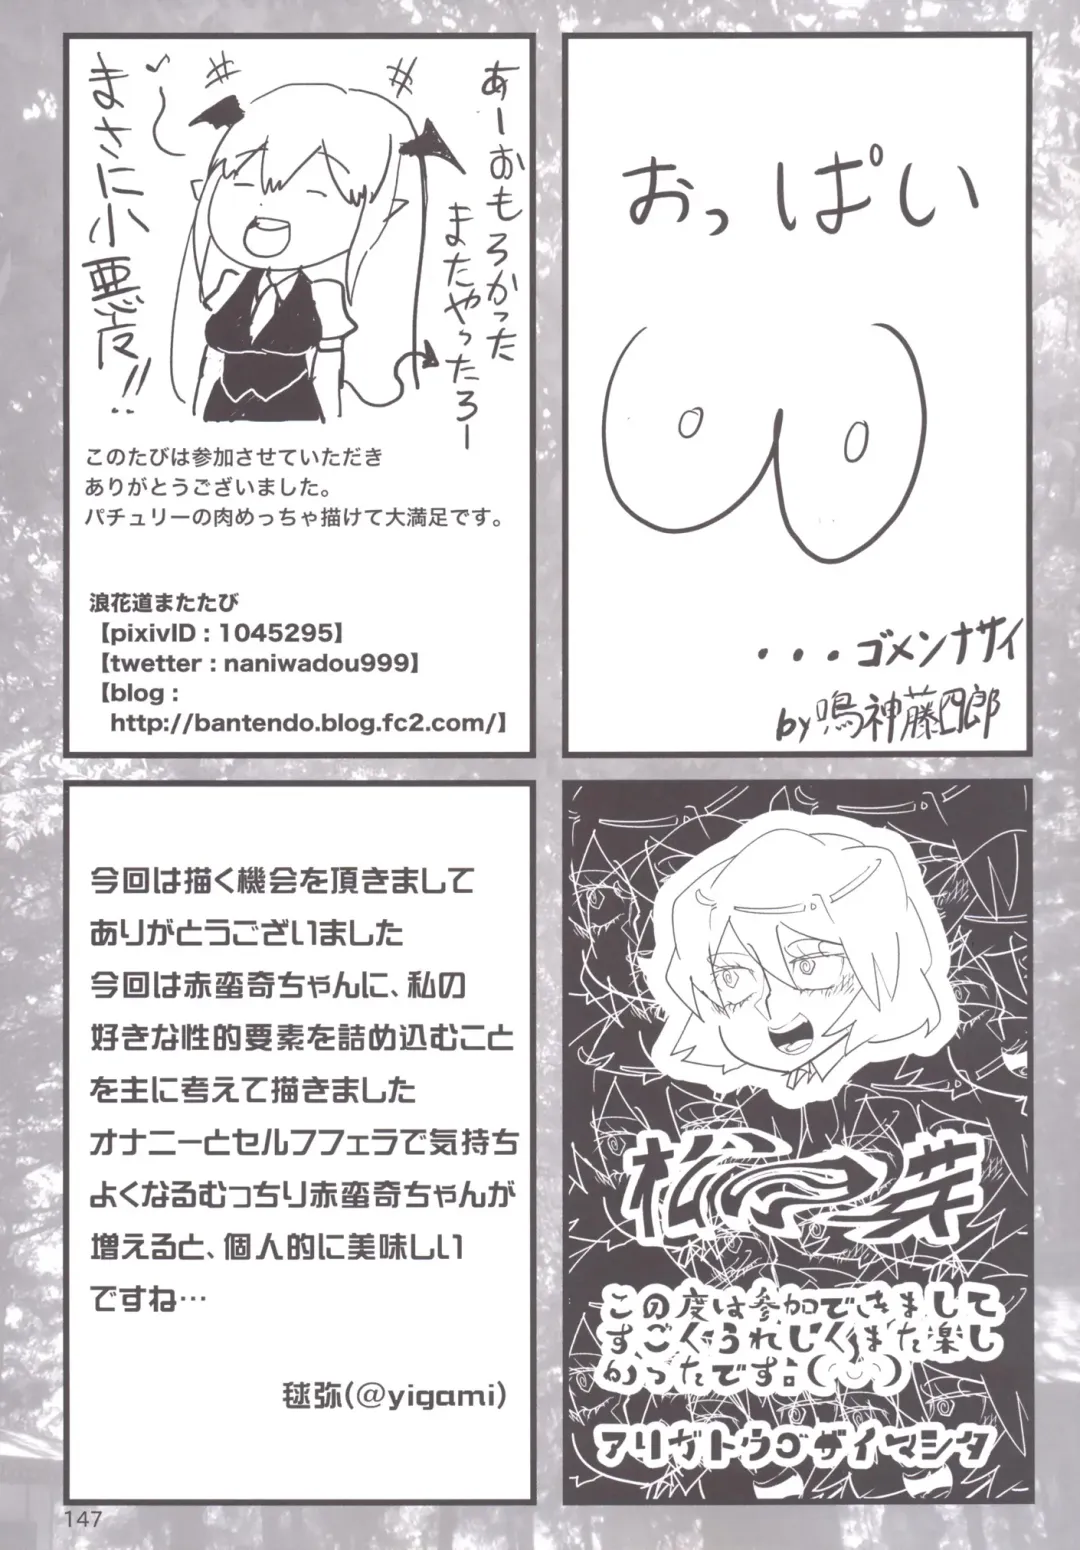 あーおもろかった
またやったろー
まさに小悪魔!!
このたびは参加させていただき
ありがとうございました。
パチュリーの肉めっちゃ描けて大満足です。
浪花道またたび
【pixivID : 1045295】
【twetter : naniwadou999】
【blog :
http://bantendo.blog.fc2.com/】
おっぱい
・・・ゴメンナサイ
by 鳴神藤四郎
今回は描く機会を頂きまして
ありがとうございました
今回は赤蛮奇ちゃんに、私の
好きな性的要素を詰め込むこと
を主に考えて描きました
オナニーとセルフフェラで気持ち
よくなるむっちり赤蛮奇ちゃんが
増えると、個人的に美味しい
ですね…
毬弥(@yigami)
この度は参加できまして
すごくうれしくまた楽し
かったです。
アリガトウゴザイマシタ
147